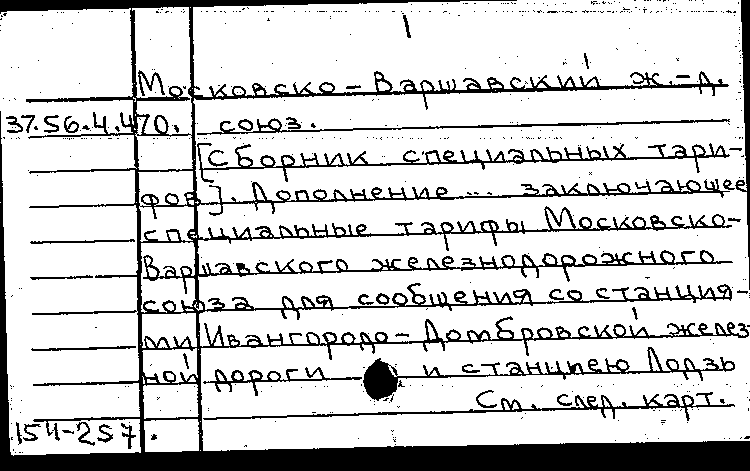 Московско-Варшавский ж.-д.
37.56.4.470. союз.
[Сборник специальных тари-
фов]. Дополнение ... заключающее
специальные тарифы Московско-
Варшавского железнодорожного
союза для сообщения со станция-
ми Ивангородо-Домбровской желез
ной дороги и станциею Лодзь
См. след. карт.
154-257.